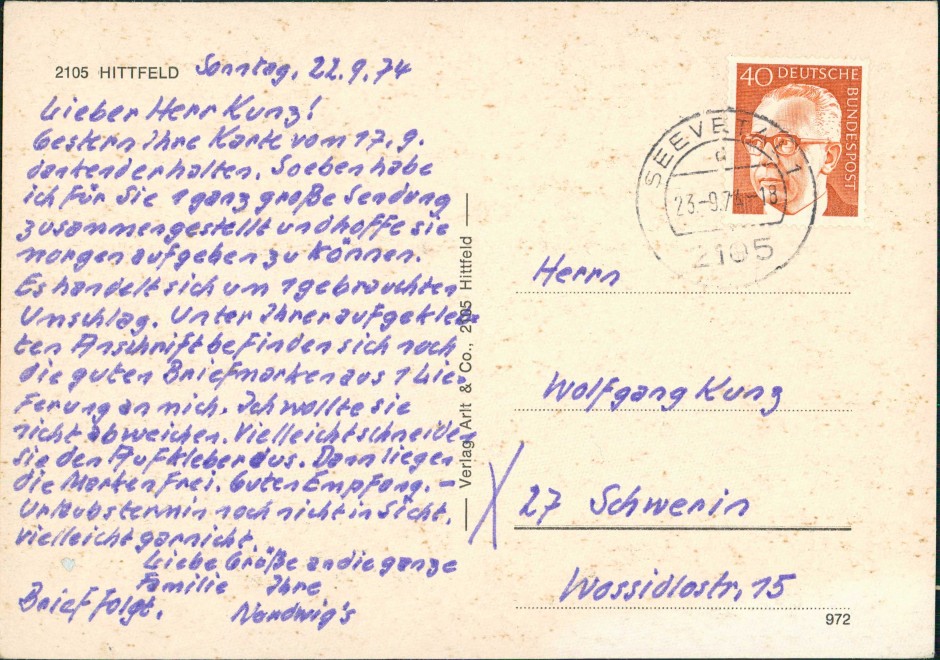 2105 HITTFELD Sonntag, 22.9.74
Lieber Herr Kunz!
Gestern Ihre Karte vom 17.9.
dankend erhalten. Soeben habe
ich für Sie 1 ganz große Sendung
zusammengestellt und hoffe sie
morgen aufgeben zu können.
Es handelt sich um 1 gebrauchten
Umschlag. Unter Ihrer aufgekleb-
ten Anschrift befinden sich noch
die guten Briefmarken aus 1 Lie-
ferung an mich. Ich wollte sie
nicht abweichen. Vielleicht schneiden
sie den Aufkleber aus. Dann liegen
die Marken frei. Guten Empfang. -
Urlaubstermin noch nicht in Sicht,
vielleicht garnicht.
Liebe Grüße an die ganze
Familie Ihre
Brief folgt. Nardwig's
Verlag Arlt & Co., 2105 Hittfeld
40 DEUTSCHE
BUNDESPOST
SEEVETAL 1
d
23.-9.74-18
2105
Herrn
Wolfgang Kunz
27 Schwerin
Wossidlostr. 15
972